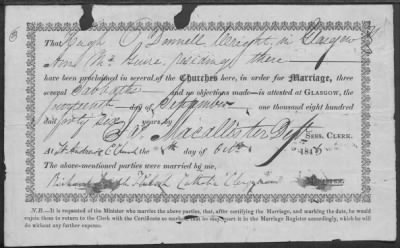 That Hugh O'Donnell Wright in Glasgow &
Ann McGuire residing there
have been proclaimed in several of the Churches here, in order for Marriage, three
several Sabbaths and no objections made—is attested at GLASGOW, the
day of September one thousand eight hundred
and forty six years by
J. Macallister Dep. SESS. CLERK.
At St Andrews C. Church the day of Octr. 1846
The above-mentioned parties were married by me,
Catholic Clergyman MINISTER.
N.B.—It is requested of the Minister who marries the above parties, that, after certifying the Marriage, and marking the date, he would
return them to the Clerk with the Certificate so marked, that he may insert it in the Marriage Register accordingly, which he will
do without any further expense.